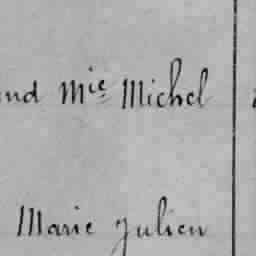 Mie Michel
Marie Julien